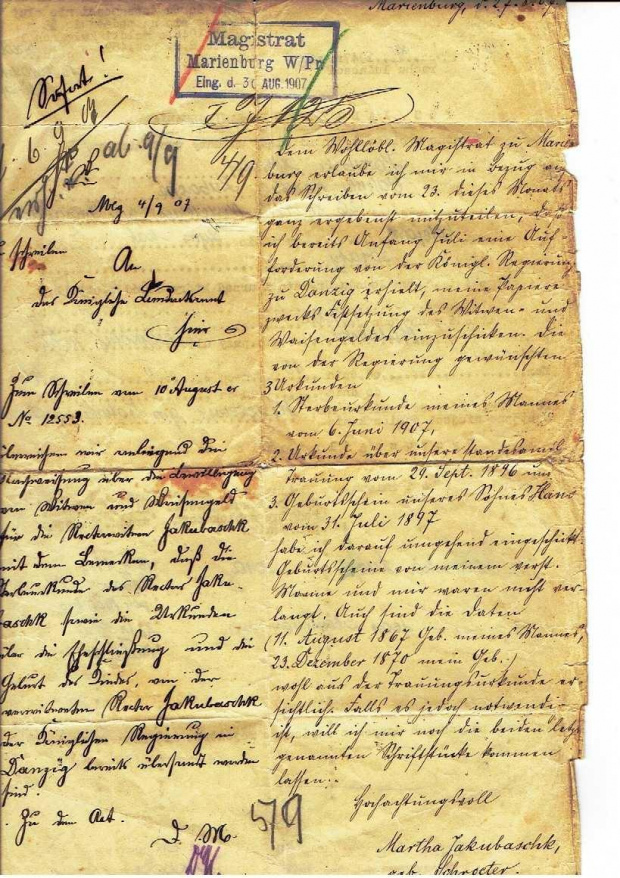 Marienburg, d. 27.8.07
Magistrat
Marienburg W/Pr
Eing. d. 30 AUG. 1907
Sofort!
ab 9/9
4/9
Mbg 4/9 07
Schreiben
An
das Königliche Landratsamt
hier
Zum Schreiben vom 10 August cr
No 12553.
überreichen wir anliegend die
Nachweisung über die Bewilligung
von Witwen und Waisengeld
für die Rectorwitwe Jakubaschk
mit dem Bemerken, daß die
Sterbeurkunde des Rector Jaku-
baschk sowie die Urkunden
über die Eheschließung und die
Geburt des Kindes, von der
verwitweten Rector Jakubaschk
der Königlichen Regierung in
Danzig bereits übersandt worden
sind.
Zu den Act.
D. M.
5/9
Dem Wohllöbl. Magistrat zu Marien-
burg erlaube ich mir in Bezug auf
das Schreiben vom 23. dieses Monats
ganz ergebenst mitzuteilen, daß
ich bereits Anfang Juli eine Auf-
forderung von der Königl. Regierung
zu Danzig erhielt, meine Papiere
zwecks Festsetzung des Witwen- und
Waisengeldes einzuschicken. Die
von der Regierung gewünschten
3 Urkunden
1. Sterbeurkunde meines Mannes
vom 6. Juni 1907,
2. Urkunde über unsere standesamtl.
Trauung vom 29. Sept. 1896 und
3. Geburtsschein unseres Sohnes Hans
vom 31. Juli 1897
habe ich darauf umgehend eingeschickt.
Geburtsscheine von meinem verst.
Manne und mir waren nicht ver-
langt. Auch sind die Daten
(11. August 1867 Geb. meines Mannes,
23. Dezember 1870 mein Geb.)
wohl aus der Trauungsurkunde er-
sichtlich. Falls es jedoch notwendig
ist, will ich mir noch die beiden letzt-
genannten Schriftstücke kommen
lassen.
Hochachtungsvoll
Martha Jakubaschk,
geb. Schroeter.